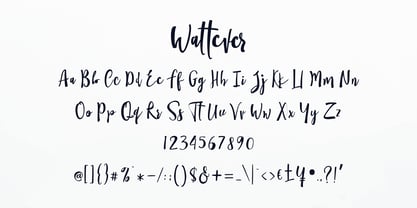 Wattever
Aa Bb Cc Dd Ee Ff Gg Hh Ii Jj Kk Ll Mm Nn
Oo Pp Qq Rr Ss Tt Uu Vv Ww Xx Yy Zz
1234567890
@[]{}#%*-/::()$&+=_\|`<>€±¥•..?!'